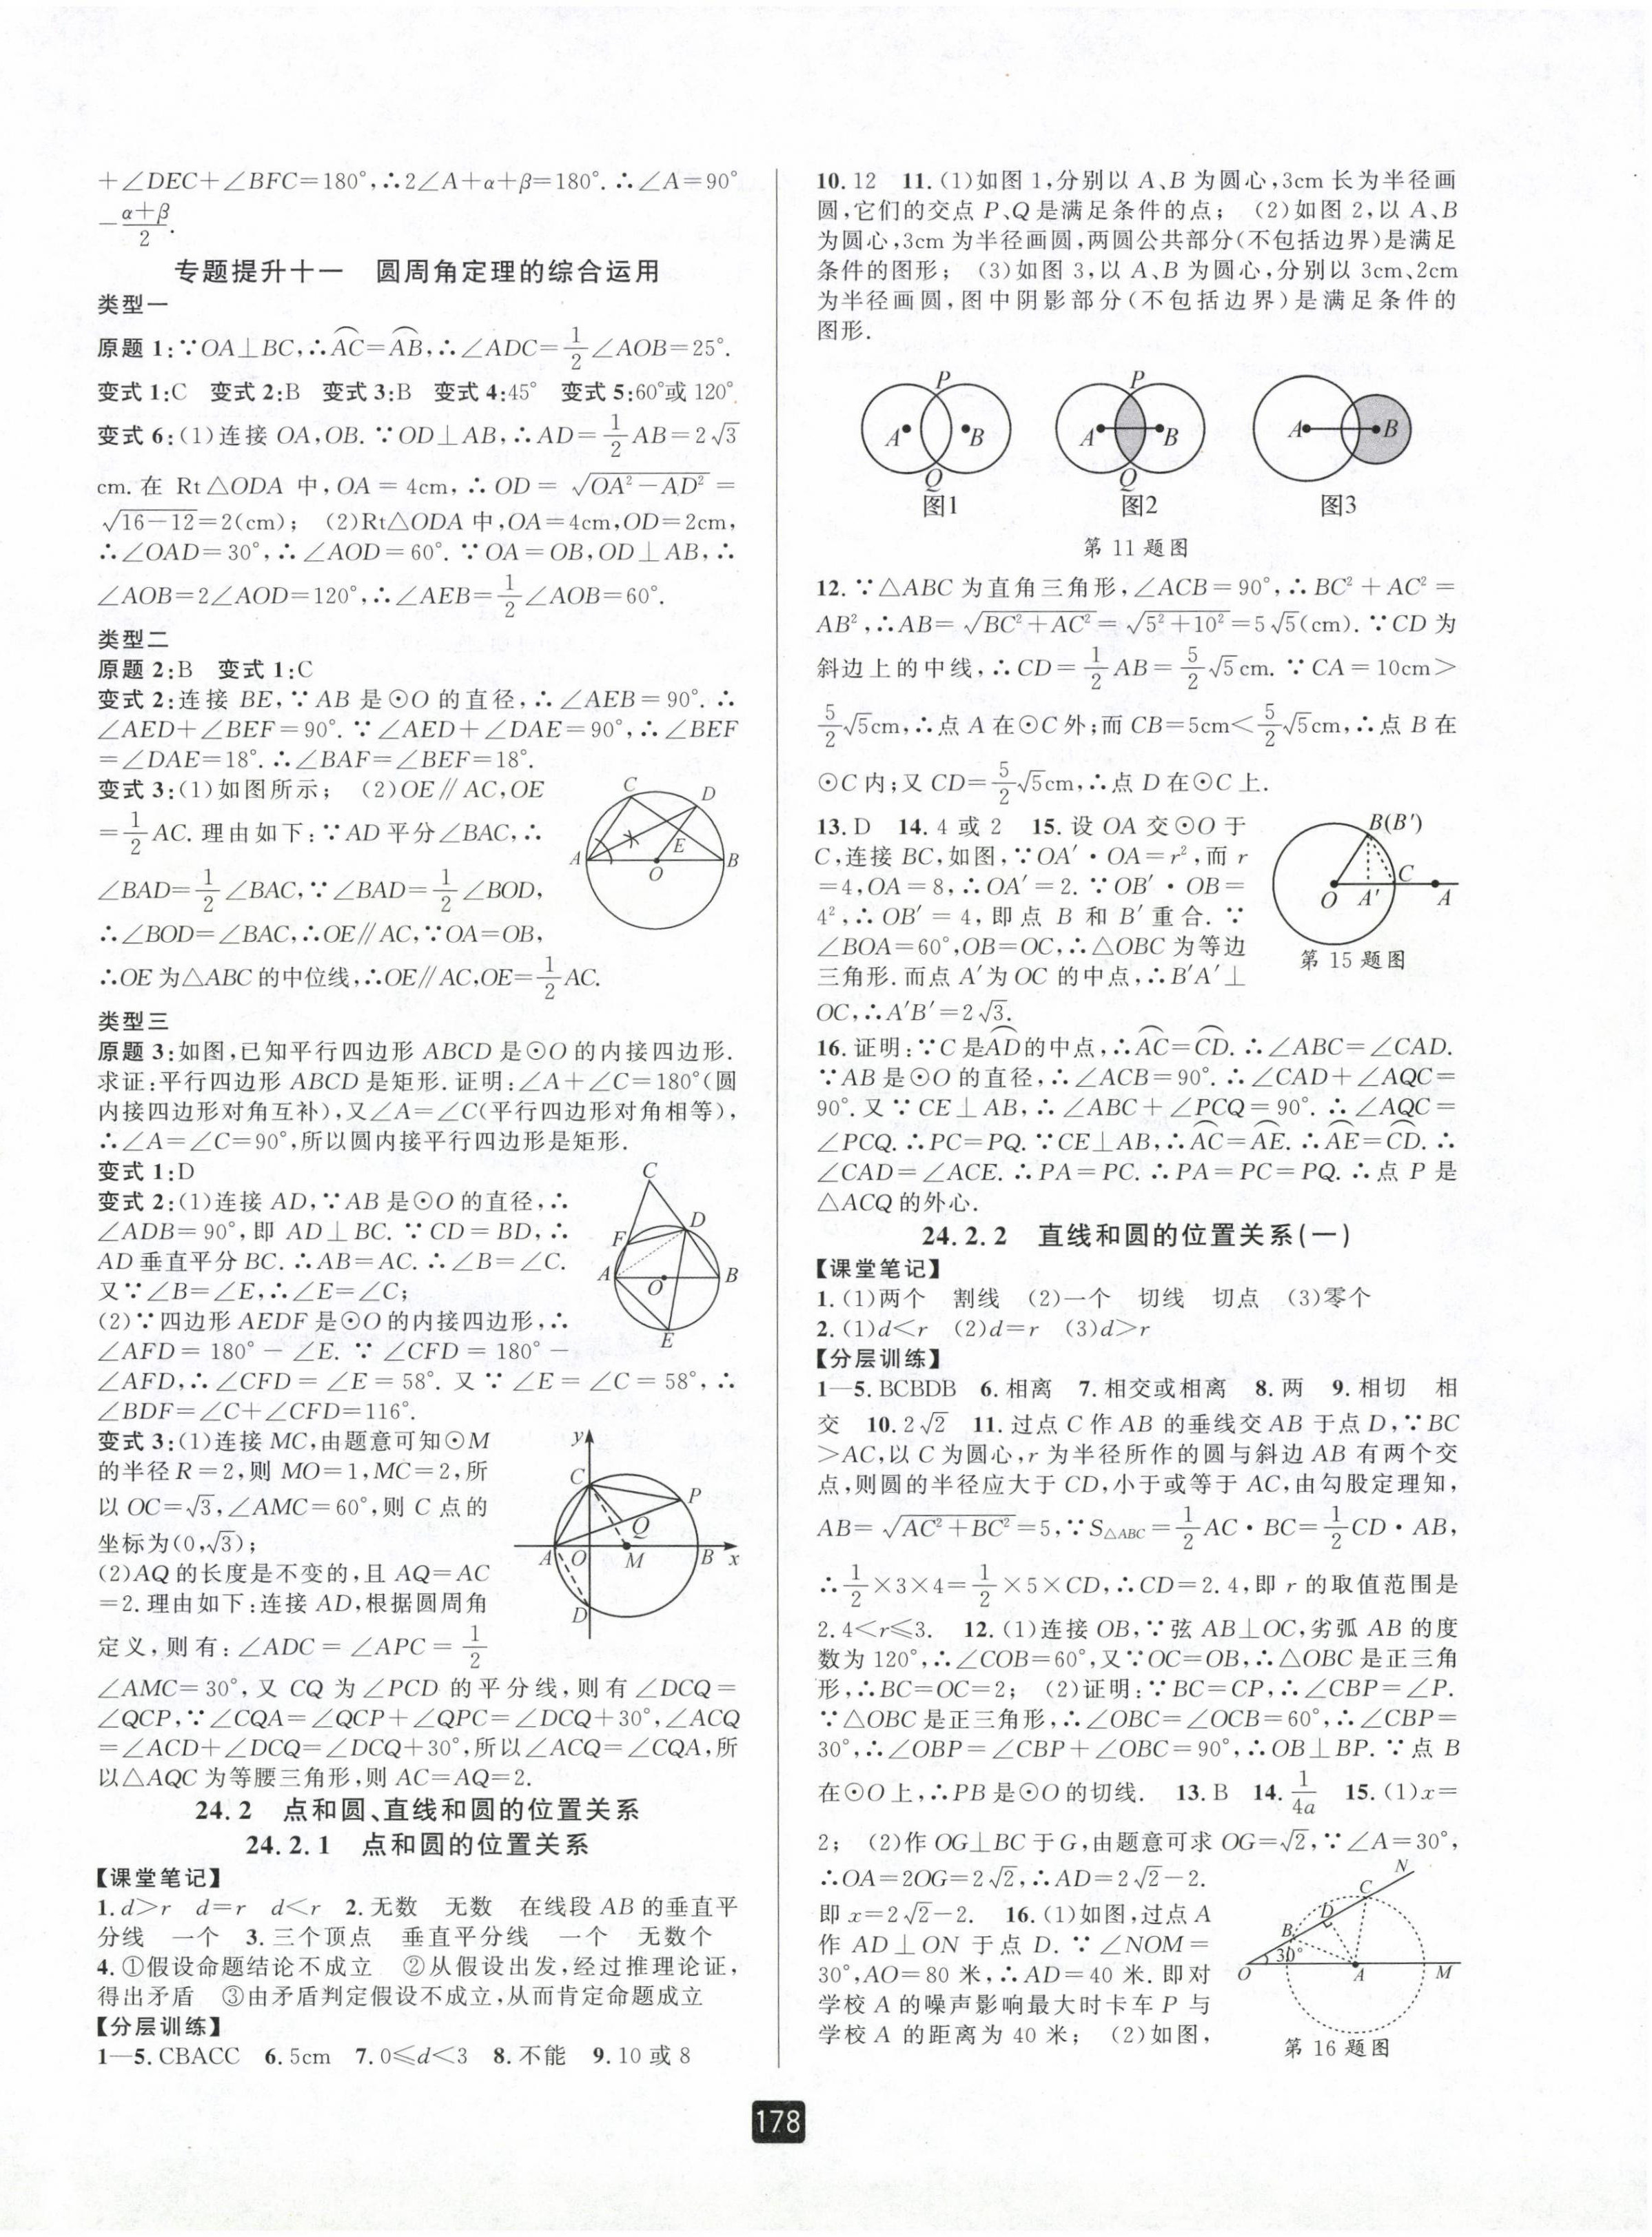 +∠DEC+∠BFC=180°,∴2∠A+α+β=180°.∴∠A=90°
−(α+β)/2.
专题提升十一　圆周角定理的综合运用
类型一
原题1:∵OA⊥BC,∴⌒AC=⌒AB,∴∠ADC=1/2∠AOB=25°.
变式1:C　变式2:B　变式3:B　变式4:45°　变式5:60°或120°
变式6:(1)连接OA,OB.∵OD⊥AB,∴AD=1/2AB=2√3
cm.在 Rt△ODA 中,OA=4cm,∴OD=√(OA²−AD²)=
√(16−12)=2(cm);　(2)Rt△ODA中,OA=4cm,OD=2cm,
∴∠OAD=30°,∴∠AOD=60°.∵OA=OB,OD⊥AB,∴
∠AOB=2∠AOD=120°,∴∠AEB=1/2∠AOB=60°.
类型二
原题2:B　变式1:C
变式2:连接BE,∵AB是⊙O的直径,∴∠AEB=90°.∴
∠AED+∠BEF=90°.∵∠AED+∠DAE=90°,∴∠BEF
=∠DAE=18°.∴∠BAF=∠BEF=18°.
变式3:(1)如图所示;　(2)OE∥AC,OE
=1/2AC.理由如下:∵AD平分∠BAC,∴
∠BAD=1/2∠BAC,∵∠BAD=1/2∠BOD,
∴∠BOD=∠BAC,∴OE∥AC,∵OA=OB,
∴OE为△ABC的中位线,∴OE∥AC,OE=1/2AC.
C
D
E
A
O
B
类型三
原题3:如图,已知平行四边形ABCD是⊙O的内接四边形.
求证:平行四边形ABCD是矩形.证明:∠A+∠C=180°(圆
内接四边形对角互补),又∠A=∠C(平行四边形对角相等),
∴∠A=∠C=90°,所以圆内接平行四边形是矩形.
变式1:D
变式2:(1)连接AD,∵AB是⊙O的直径,∴
∠ADB=90°,即AD⊥BC.∵CD=BD,∴
AD垂直平分BC.∴AB=AC.∴∠B=∠C.
又∵∠B=∠E,∴∠E=∠C;
(2)∵四边形AEDF是⊙O的内接四边形,∴
∠AFD=180°−∠E.∵∠CFD=180°−
∠AFD,∴∠CFD=∠E=58°.又∵∠E=∠C=58°,∴
∠BDF=∠C+∠CFD=116°.
C
F
D
A
O
B
E
变式3:(1)连接MC,由题意可知⊙M
的半径R=2,则MO=1,MC=2,所
以OC=√3,∠AMC=60°,则C点的
坐标为(0,√3);
(2)AQ的长度是不变的,且AQ=AC
=2.理由如下:连接AD,根据圆周角
定义,则有:∠ADC=∠APC=1/2
∠AMC=30°,又CQ为∠PCD的平分线,则有∠DCQ=
∠QCP,∵∠CQA=∠QCP+∠QPC=∠DCQ+30°,∠ACQ
=∠ACD+∠DCQ=∠DCQ+30°,所以∠ACQ=∠CQA,所
以△AQC为等腰三角形,则AC=AQ=2.
y
C
P
Q
A
O
M
B
x
D
24.2　点和圆、直线和圆的位置关系
24.2.1　点和圆的位置关系
【课堂笔记】
1.d>r　d=r　d<r　2.无数　无数　在线段AB的垂直平
分线　一个　3.三个顶点　垂直平分线　一个　无数个
4.①假设命题结论不成立　②从假设出发,经过推理论证,
得出矛盾　③由矛盾判定假设不成立,从而肯定命题成立
【分层训练】
1—5.CBACC　6.5cm　7.0≤d<3　8.不能　9.10或8
10.12　11.(1)如图1,分别以A、B为圆心,3cm长为半径画
圆,它们的交点P、Q是满足条件的点;　(2)如图2,以A、B
为圆心,3cm为半径画圆,两圆公共部分(不包括边界)是满足
条件的图形;　(3)如图3,以A、B为圆心,分别以3cm、2cm
为半径画圆,图中阴影部分(不包括边界)是满足条件的
图形.
P
A
B
Q
图1
P
A
B
Q
图2
A
B
图3
第11题图
12.∵△ABC为直角三角形,∠ACB=90°,∴BC²+AC²=
AB²,∴AB=√(BC²+AC²)=√(5²+10²)=5√5(cm).∵CD为
斜边上的中线,∴CD=1/2AB=5/2√5cm.∵CA=10cm>
5/2√5cm,∴点A在⊙C外;而CB=5cm<5/2√5cm,∴点B在
⊙C内;又CD=5/2√5cm,∴点D在⊙C上.
13.D　14.4或2　15.设OA交⊙O于
C,连接BC,如图,∵OA′·OA=r²,而r
=4,OA=8,∴OA′=2.∵OB′·OB=
4²,∴OB′=4,即点B和B′重合.∵
∠BOA=60°,OB=OC,∴△OBC为等边
三角形.而点A′为OC的中点,∴B′A′⊥
OC,∴A′B′=2√3.
B(B′)
C
O
A′
A
第15题图
16.证明:∵C是⌒AD的中点,∴⌒AC=⌒CD.∴∠ABC=∠CAD.
∵AB是⊙O的直径,∴∠ACB=90°.∴∠CAD+∠AQC=
90°.又∵CE⊥AB,∴∠ABC+∠PCQ=90°.∴∠AQC=
∠PCQ.∴PC=PQ.∵CE⊥AB,∴⌒AC=⌒AE.∴⌒AE=⌒CD.∴
∠CAD=∠ACE.∴PA=PC.∴PA=PC=PQ.∴点P是
△ACQ的外心.
24.2.2　直线和圆的位置关系(一)
【课堂笔记】
1.(1)两个　割线　(2)一个　切线　切点　(3)零个
2.(1)d<r　(2)d=r　(3)d>r
【分层训练】
1—5.BCBDB　6.相离　7.相交或相离　8.两　9.相切　相
交　10.2√2　11.过点C作AB的垂线交AB于点D,∵BC
>AC,以C为圆心,r为半径所作的圆与斜边AB有两个交
点,则圆的半径应大于CD,小于或等于AC,由勾股定理知,
AB=√(AC²+BC²)=5,∵S△ABC=1/2AC·BC=1/2CD·AB,
∴1/2×3×4=1/2×5×CD,∴CD=2.4,即r的取值范围是
2.4<r≤3.　12.(1)连接OB,∵弦AB⊥OC,劣弧AB的度
数为120°,∴∠COB=60°,又∵OC=OB,∴△OBC是正三角
形,∴BC=OC=2;　(2)证明:∵BC=CP,∴∠CBP=∠P.
∵△OBC是正三角形,∴∠OBC=∠OCB=60°,∴∠CBP=
30°,∴∠OBP=∠CBP+∠OBC=90°,∴OB⊥BP.∵点B
在⊙O上,∴PB是⊙O的切线.　13.B　14.1/4a　15.(1)x=
2;　(2)作OG⊥BC于G,由题意可求OG=√2,∵∠A=30°,
∴OA=2OG=2√2,∴AD=2√2−2.
即x=2√2−2.　16.(1)如图,过点A
作AD⊥ON于点D.∵∠NOM=
30°,AO=80米,∴AD=40米.即对
学校A的噪声影响最大时卡车P与
学校A的距离为40米;　(2)如图,
N
C
D
B
30°
O
A
M
第16题图
178